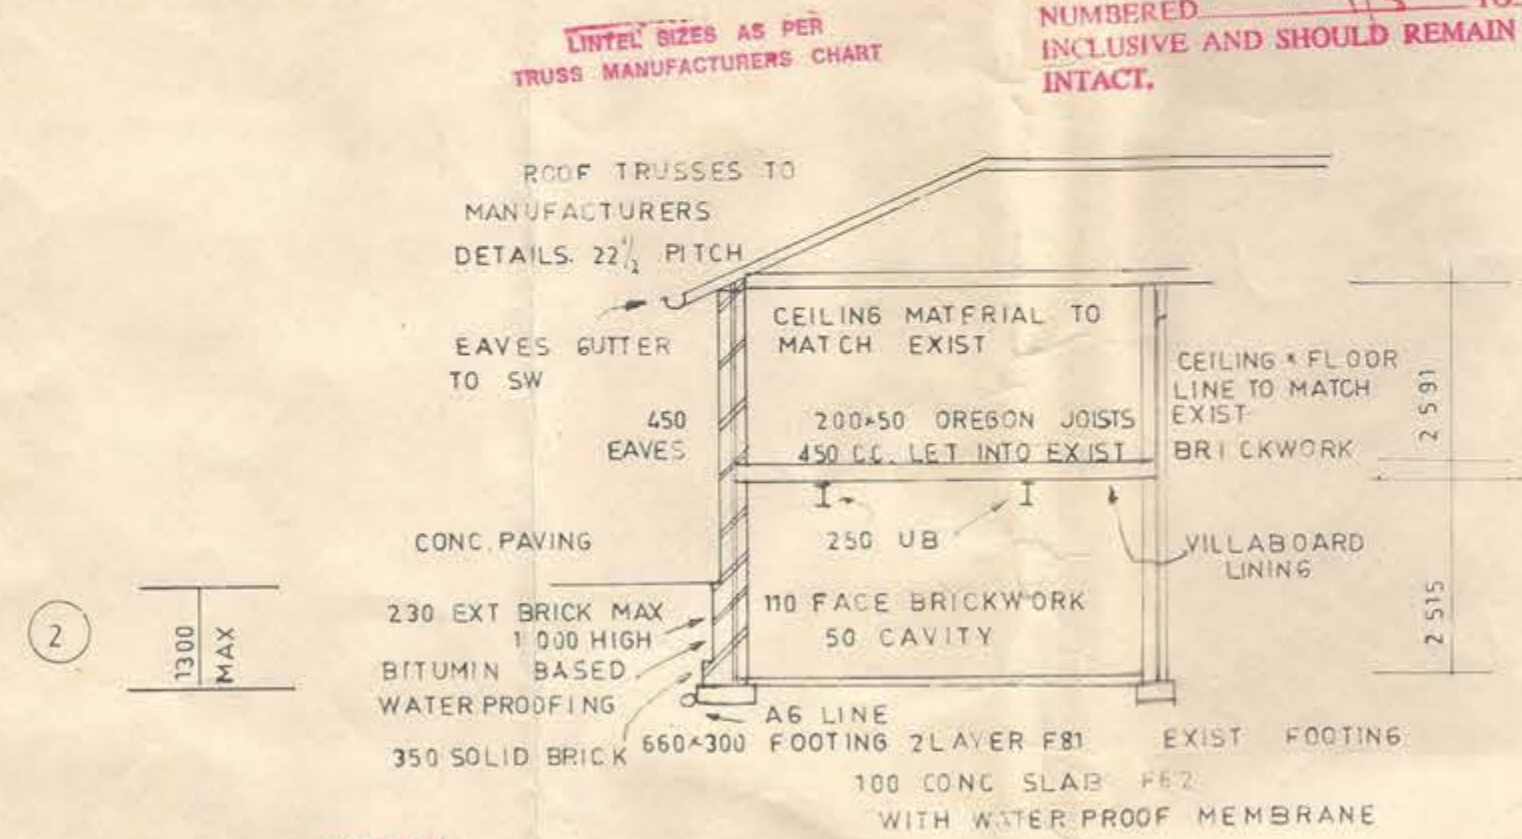 LINTEL SIZES AS PER
TRUSS MANUFACTURERS CHART
NUMBERED
INCLUSIVE AND SHOULD REMAIN
INTACT.
ROOF TRUSSES TO
MANUFACTURERS
DETAILS. 22 1/2 PITCH
EAVES GUTTER
TO SW
450
EAVES
CEILING MATERIAL TO
MATCH EXIST
200×50 OREGON JOISTS
450 CC. LET INTO EXIST
CEILING & FLOOR
LINE TO MATCH
EXIST
BRICKWORK
2 591
250 UB
VILLABOARD
LINING
CONC. PAVING
230 EXT BRICK MAX
1 000 HIGH
BITUMIN BASED
WATER PROOFING
350 SOLID BRICK
110 FACE BRICKWORK
50 CAVITY
2 515
2
1300
MAX
AG LINE
660×300 FOOTING 2 LAYER F81
EXIST FOOTING
100 CONC SLAB F62
WITH WATER PROOF MEMBRANE